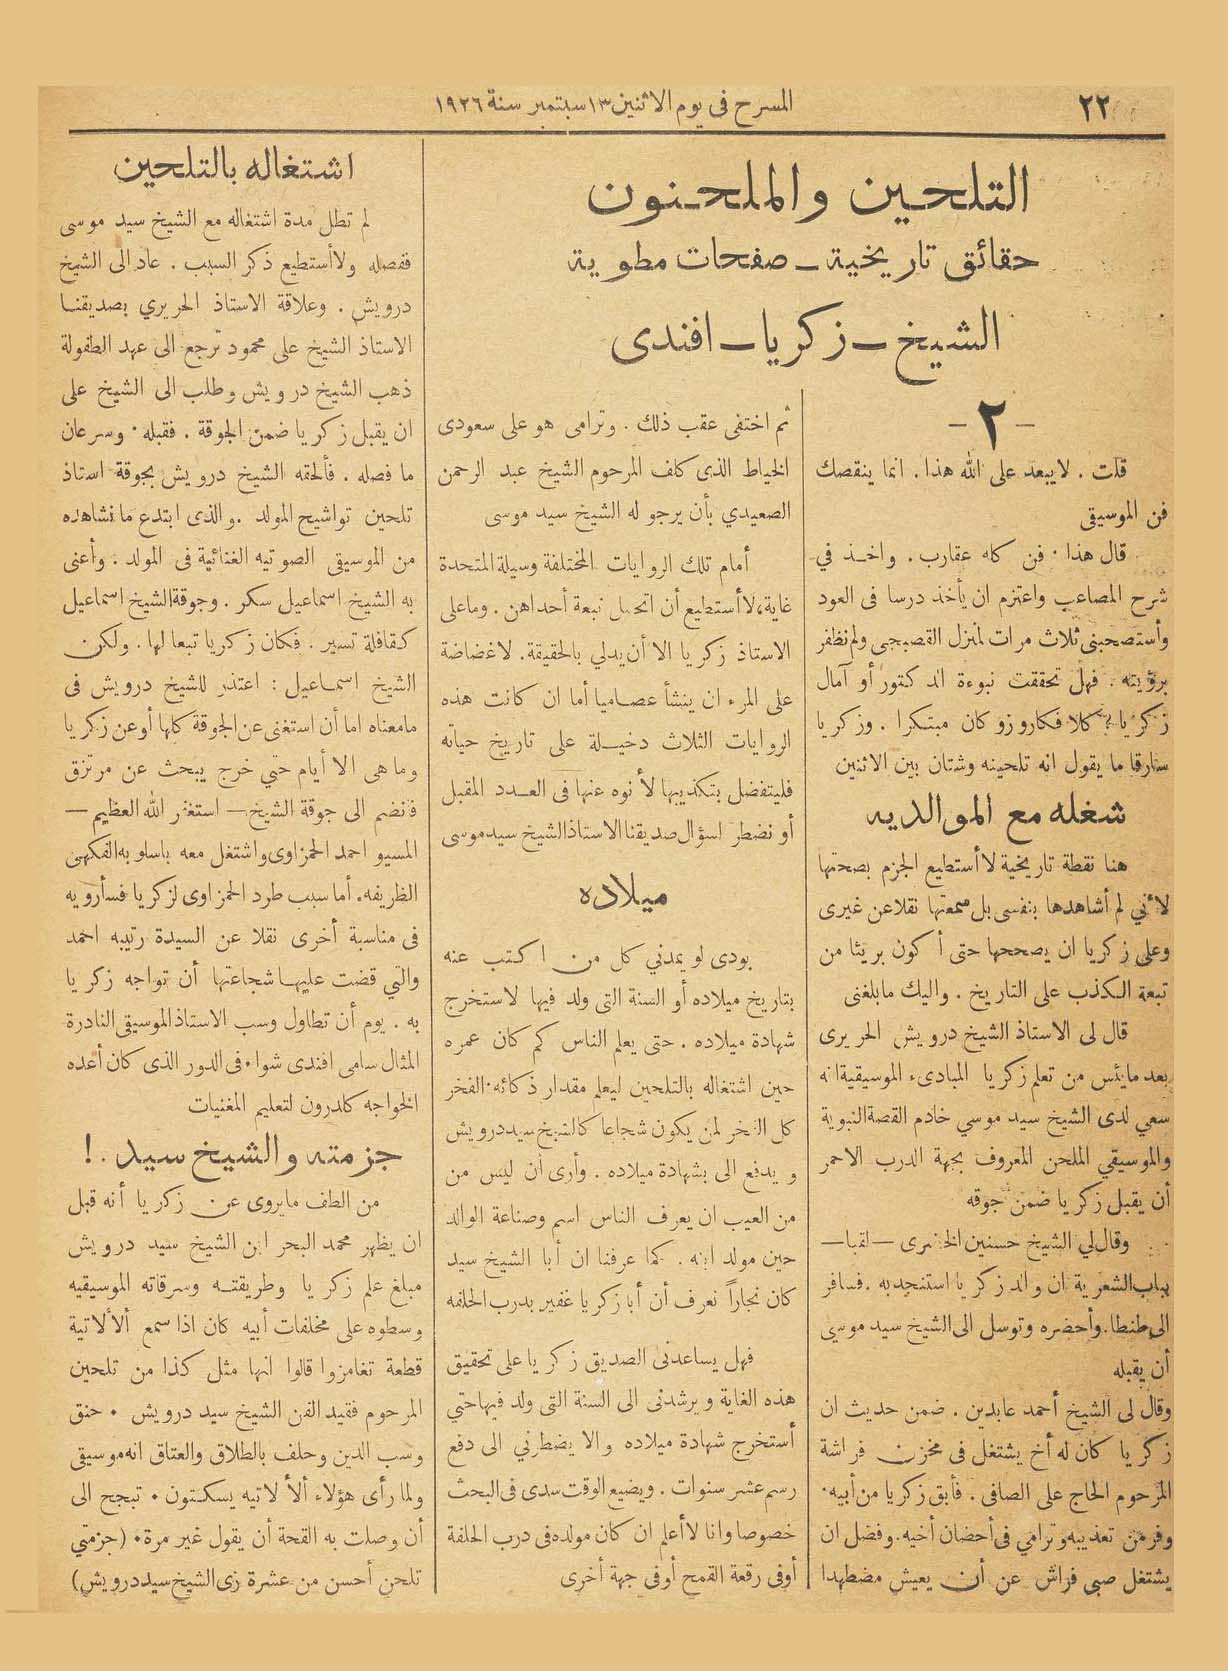 ٢٢
المسرح فى يوم الاثنين ١٣ سبتمبر سنة ١٩٢٦
التلحين والملحنون
حقائق تاريخية ـ صفحات مطوية
الشيخ ـ زكريا ـ افندى
- ٢ -
قلت . لا يبعد على الله هذا . انما ينقصك
فن الموسيقى
قال هذا . فن كله عقارب . واخذ في
شرح المصاعب واعتزم ان يأخذ درسا فى العود
وأستصحبنى ثلاث مرات لمنزل القصبجى ولم نظفر
برؤيته . فهل تحققت نبوءة الدكتور أو آمال
زكريا ؟ كلا فكاروزو كان مبتكرا . وزكريا
سارقا ما يقول انه تلحينه وشتان بين الاثنين
شغله مع الموالديه
هنا نقطة تاريخية لا أستطيع الجزم بصحتها
لأنني لم أشاهدها بنفسى بل سمعتها نقلا عن غيرى
وعلى زكريا ان يصححها حتى أكون بريئا من
تبعة الكذب على التاريخ . واليك ما بلغنى
قال لى الاستاذ الشيخ درويش الحريرى
بعد ما يئس من تعلم زكريا المبادىء الموسيقية انه
سعي لدى الشيخ سيد موسي خادم القصة النبوية
والموسيقي الملحن المعروف بجهة الدرب الاحمر
أن يقبل زكريا ضمن جوقه
وقال لي الشيخ حسنين الخضرى — لقبا —
بباب الشعرية ان والد زكريا استنجد به . فسافر
الى طنطا . وأحضره وتوسل الى الشيخ سيد موسي
أن يقبله
وقال لى الشيخ أحمد عابدين . ضمن حديث ان
زكريا كان له أخ يشتغل فى مخزن فراشة
المرحوم الحاج على الصافى . فأبق زكريا من أبيه .
وفر من تعذيبه وترامي فى أحضان أخيه . وفضل ان
يشتغل صبى فراش عن أن يعيش مضطهدا
ثم اختفى عقب ذلك . وترامى هو على سعودى
الخياط الذى كلف المرحوم الشيخ عبد الرحمن
الصعيدي بأن يرجو له الشيخ سيد موسى
أمام تلك الروايات المختلفة وسيلة المتحدة
غاية، لا أستطيع أن اتحمل تبعة أحداهن . وما على
الاستاذ زكريا الا أن يدلي بالحقيقة . لا غضاضة
على المرء ان ينشأ عصاميا أما ان كانت هذه
الروايات الثلاث دخيلة على تاريخ حياته
فليتفضل بتكذيبها لأنوه عنها فى العدد المقبل
أو نضطر اسؤال صديقنا الاستاذ الشيخ سيد موسى
ميلاده
بودى لو يمدني كل من اكتب عنه
بتاريخ ميلاده أو السنة التى ولد فيها لاستخرج
شهادة ميلاده . حتى يعلم الناس كم كان عمره
حين اشتغاله بالتلحين ليعلم مقدار ذكائه . الفخر
كل الفخر لمن يكون شجاعا كالشيخ سيد درويش
ويدفع الى بشهادة ميلاده . وأرى أن ليس من
من العيب ان يعرف الناس اسم وصناعة الوالد
حين مولد ابنه . كما عرفنا ان أبا الشيخ سيد
كان نجاراً نعرف أن أبا زكريا غفير بدرب الحلفه
فهل يساعدنى الصديق زكريا على تحقيق
هذه الغاية ويرشدنى الى السنة التى ولد فيها حتي
أستخرج شهادة ميلاده والا يضطرني الى دفع
رسم عشر سنوات . ويضيع الوقت سدى فى البحث
خصوصا وانا لا أعلم ان كان مولده فى درب الحلفة
أو فى رقعة القمح أو في جهة أخرى
اشتغاله بالتلحين
لم تطل مدة اشتغاله مع الشيخ سيد موسى
ففصله ولا أستطيع ذكر السبب . عاد الى الشيخ
درويش . وعلاقة الاستاذ الحريري بصديقنا
الاستاذ الشيخ على محمود ترجع الى عهد الطفولة
ذهب الشيخ درويش وطلب الى الشيخ على
ان يقبل زكريا ضمن الجوقة . فقبله . وسرعان
ما فصله . فألحقه الشيخ درويش بجوقة استاذ
تلحين تواشيح المولد . والذى ابتدع ما نشاهده
من الموسيقى الصوتيه الغنائية فى المولد . وأعنى
به الشيخ اسماعيل سكر . وجوقة الشيخ اسماعيل
كقافلة تسير . فكان زكريا تبعا لها . ولكن
الشيخ اسماعيل : اعتذر للشيخ درويش فى
ما معناه اما أن استغنى عن الجوقة كلها أو عن زكريا
وما هى الا أيام حتي خرج يبحث عن مرتزق
فانضم الى جوقة الشيخ — استغفر الله العظيم —
المسيو احمد الحمزاوى واشتغل معه باسلوبه الفكهى
الظريفه . أما سبب طرد الحمزاوى لزكريا فسأرويه
فى مناسبة أخرى نقلا عن السيدة رتيبه احمد
والتي قضت عليها شجاعتها أن تواجه زكريا
به . يوم أن تطاول وسب الاستاذ الموسيقى النادرة
المثال سامى افندى شوا . فى الدور الذى كان أعده
الخواجه كلدرون لتعليم المغنيات
جزمته والشيخ سيد . !
من الطف ما يروى عن زكريا أنه قبل
ان يظهر محمد البحر ابن الشيخ سيد درويش
مبلغ علم زكريا وطريقته وسرقاته الموسيقيه
وسطوه على مخلفات أبيه كان اذا سمع ألألاتية
قطعة تغامزوا قالوا انها مثل كذا من تلحين
المرحوم فقيد الفن الشيخ سيد درويش . حنق
وسب الدين وحلف بالطلاق والعتاق انه موسيقى
ولما رأى هؤلاء ألألاتيه يسكتون . تبجح الى
أن وصلت به القحة أن يقول غير مرة . (جزمتي
تلحن أحسن من عشرة زى الشيخ سيد درويش)